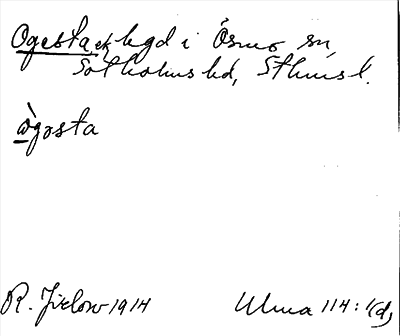 Ogesta ek, bgd i Ösmo sn,
Sotholms hd, Sthmsl.
ògosta
R. Jirlow 1914 Ulma 114:1(d)